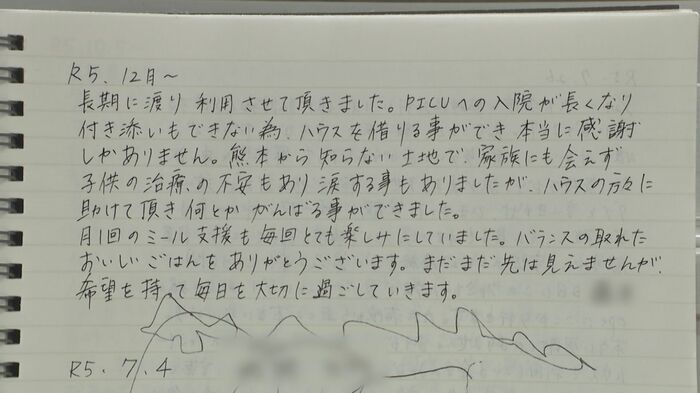 R5. 12月~
長期に渡り利用させて頂きました。PICUへの入院が長くなり
付き添いもできない為、ハウスを借りる事ができ本当に感謝
しかありません。熊本から知らない土地で、家族にも会えず
子供の治療の不安もあり涙する事もありましたが、ハウスの方々に
助けて頂き何とかがんばる事ができました。
月1回のミール支援も毎回とても楽しみにしていました。バランスの取れた
おいしいごはんをありがとうございます。まだまだ先は見えませんが、
希望を持って毎日を大切に過ごしていきます。
R5. 7. 4